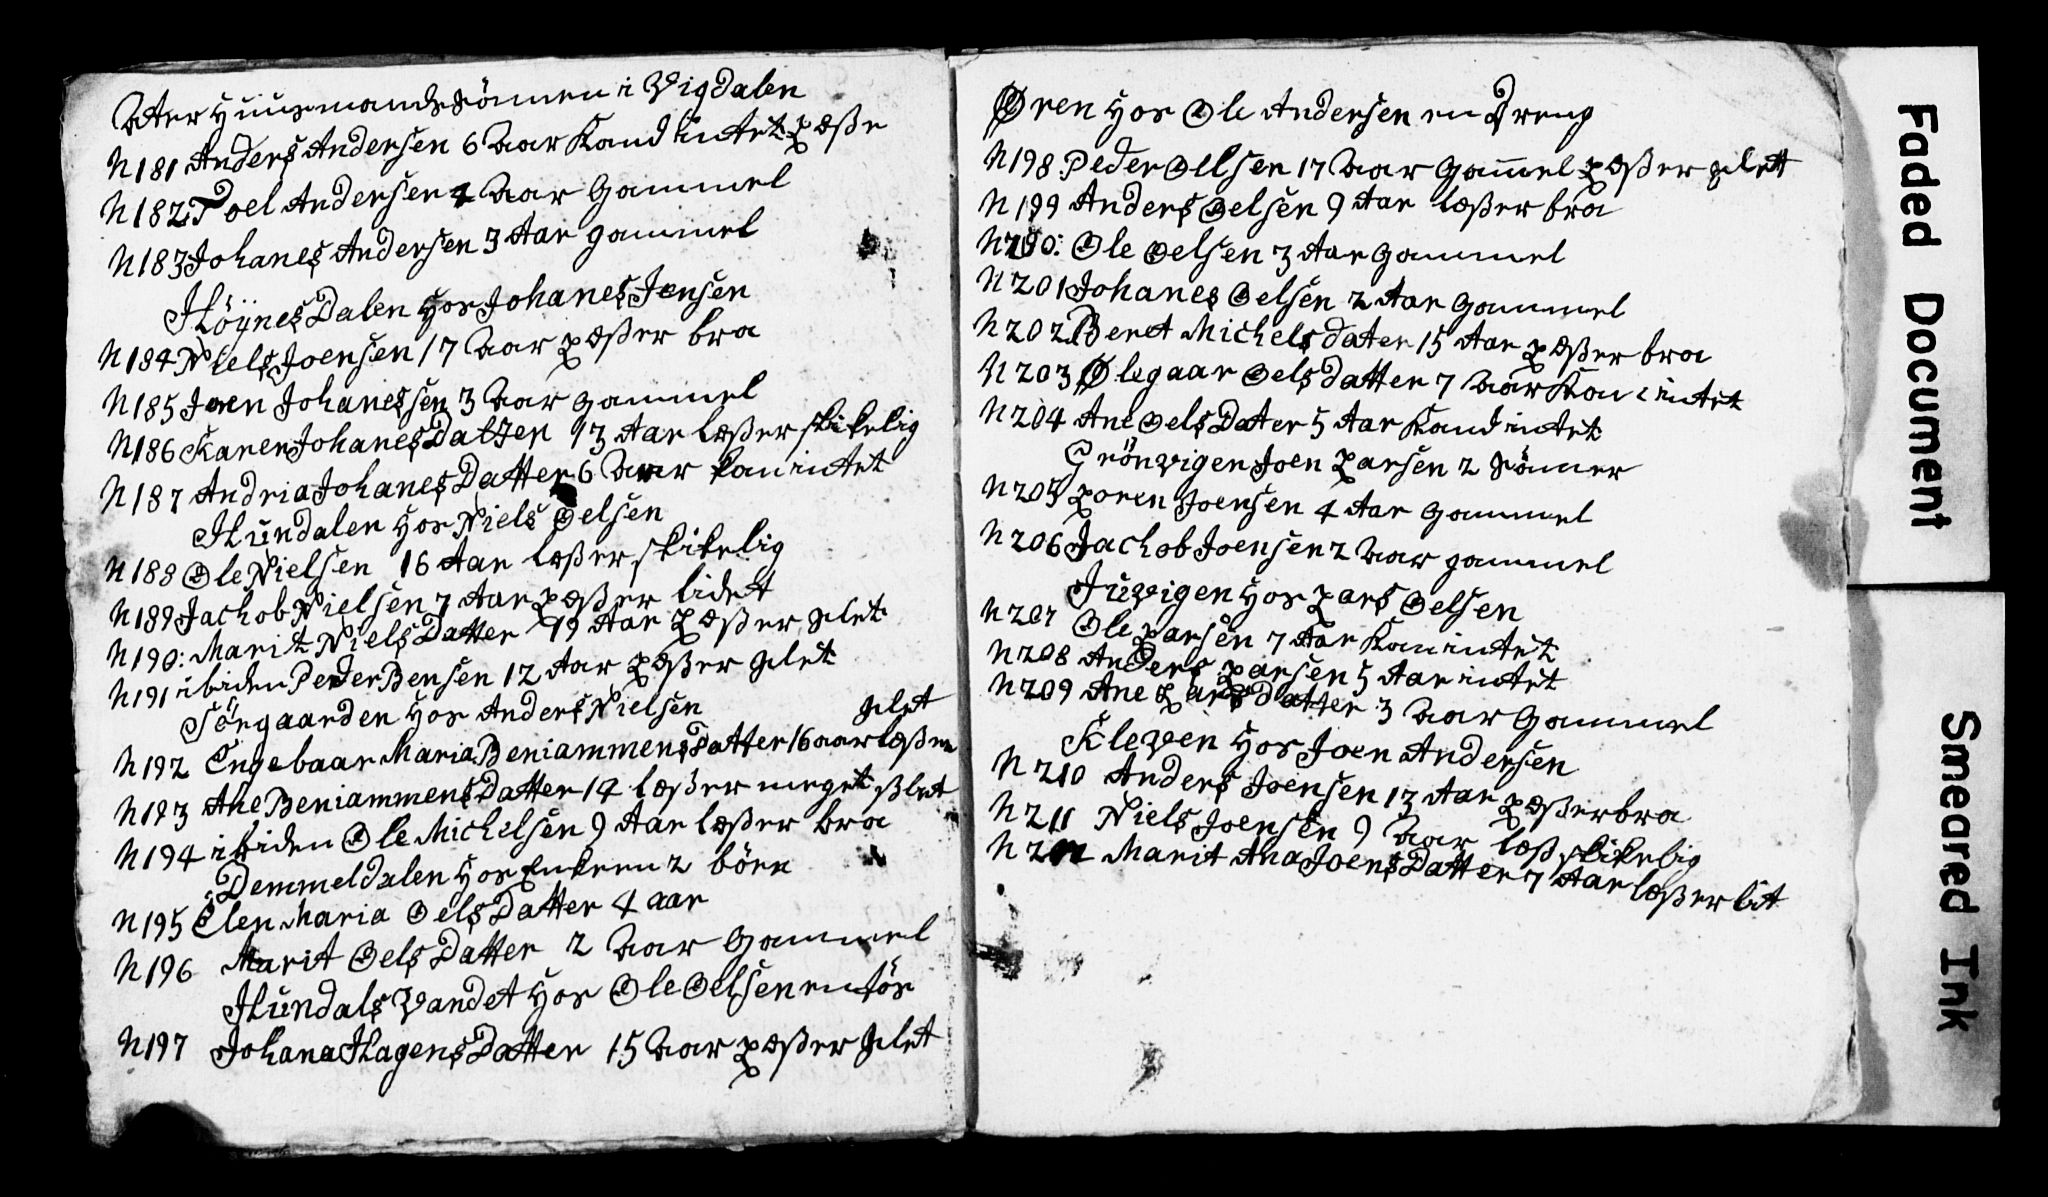 Atter Huusmands Sönnen i Vigdalen
N181 Anders Andersen 6 Aar Kand intet Læße
N182 Poel Andersen 4 Aar Gammel
N183 Johanes Andersen 3 Aar gammel
Höÿnes Dalen Hos Johanes Jensen
N184 Niels Joensen 17 Aar Læßer bra
N185 Joen Johanessen 3 Aar gammel
N186 Karen Johanes Datter 13 Aar Læßer skikelig
N187 Andria Johanes Datter 6 Aar kan intet
Hundalen Hos Niels Oelsen
N188 Ole Nielsen 16 Aar læßer skikelig
N189 Jachob Nielsen 7 Aar Læßer lidet
N190: Marit Niels Datter 19 Aar Læßer slet
N191 ibiden Peder Bensen 12 Aar Læßer slet
Sörgaarden Hos Anders Nielsen
slet
N192 Engebaar Maria Beniammens Datter 16 aar læßer
N193 Ane Beniammens Datter 14 læßer meget slet
N194 ibiden Ole Michelsen 9 Aar læßer bra
Demmeldalen Hos Enken 2 börn
N195 Elen Maria Oels Datter 4 aar
N196 Marit Oels Datter 2 Aar Gammel
Hundals Vandet Hos Ole Oelsen en tös
N197 Johana Hagens Datter 15 Aar Læßer slet
Øren Hos Ole Andersen en Dreng
N198 Peder Ollsen 17 Aar Gammel Læßer slet
N199 Anders Oelsen 9 Aar læßer bra
N200: Ole Oelsen 3 Aar gammel
N201 Johanes Oelsen 2 Aar Gammel
N202 Beret Michels dater 15 Aar Læßer bra
N203 Ølegaar Oels datter 7 Aar Kan intet
N204 Ane Oels Dater 5 Aar Kand intet
Grönvigen Joen Larsen 2 Sönner
N205 Loren Joensen 4 Aar Gammel
N206 Jachob Joensen 2 Aar gammel
Juvigen Hos Lars Oelsen
N207 Ole Larsen 7 Aar Kan intet
N208 Anders Larsen 5 Aar intet
N209 Ane Lars Datter 3 Aar Gammel
Kleven Hos Joen Andersen
N210 Anders Joensen 13 Aar Læßer bra
N211 Niels Joensen 9 Aar læß skikelig
N212 Marit Ana Joens Datter 7 Aar læßer lit
Faded Document
Smeared Ink